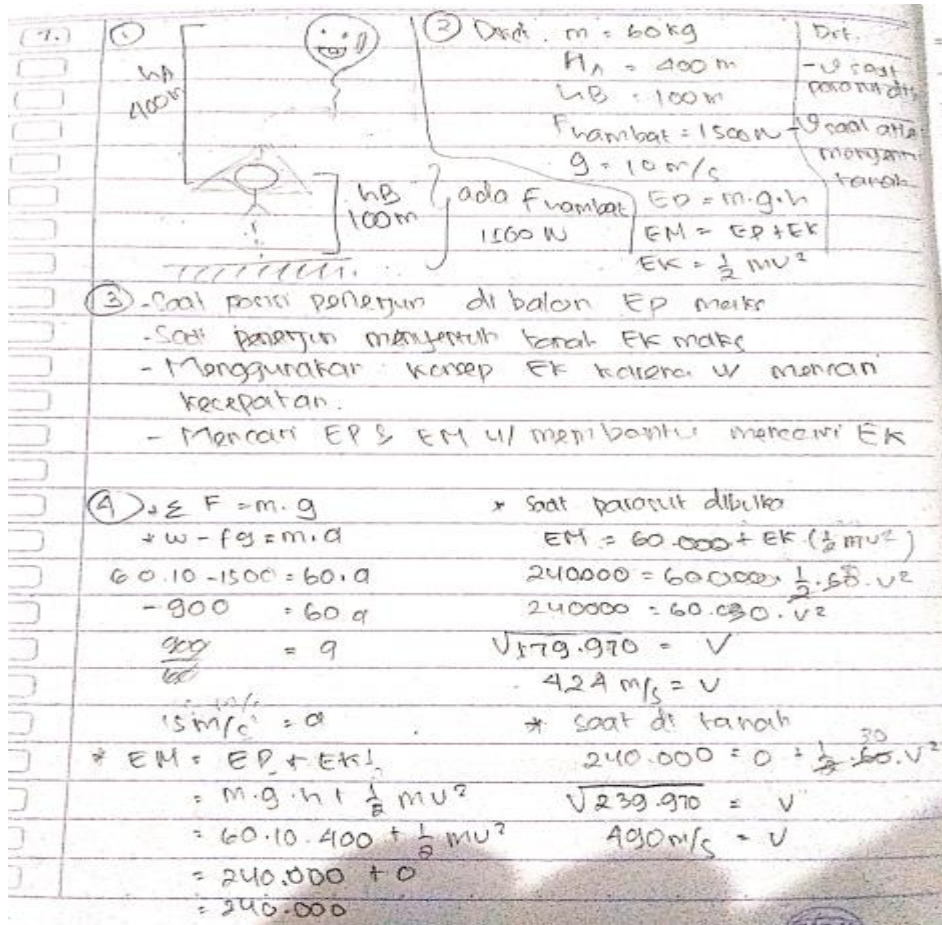 7.) ① hA 400m
hB 100m
ada F hambat
1500 N
② Diket. m = 60 kg
HA = 400 m
hB = 100 m
F hambat = 1500 N
g = 10 m/s
EP = m.g.h
EM = EP + EK
EK = 1/2 mv²
Dit.
- v saat
parasut
- v saat
tanah
③ - Saat posisi penerjun di balon EP maks
- Saat penerjun menyentuh tanah EK maks
- Menggunakan konsep EK karena u/ mencari
kecepatan.
- Mencari EP & EM u/ membantu mencari EK
④ * Σ F = m.g
* w - fg = m.a
60.10 - 1500 = 60.a
-900 = 60 a
900/60 = a
15 m/s = a
* EM = EP + EK
= m.g.h + 1/2 mv²
= 60.10.400 + 1/2 mv²
= 240.000 + 0
= 240.000
* Saat parasut dibuka
EM = 60.000 + EK (1/2 mv²)
240000 = 60000 1/2.60.v²
240000 = 60.030.v²
√179.970 = v
424 m/s = v
* saat di tanah
240.000 = 0 + 1/2.60.v² 30
√239.970 = v
490 m/s = v